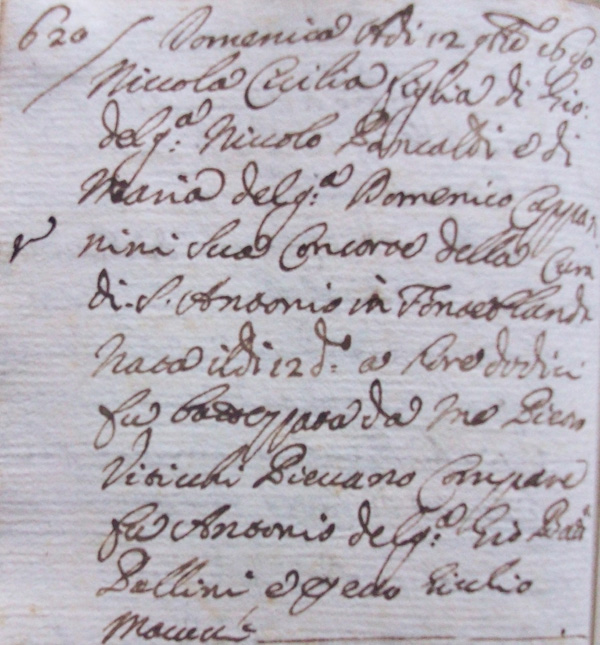 620 Domenica Adi 12 9bre 1690
Niccola Cicilia figlia di Gio:
del q:m Niccolo Pancaldi e di
Maria del q:m Domenico Cappan
nini sua Consorte della Cura
di S. Antonio in
Nata il di 12 d:o a hore dodici
fu battezzata da me Piero
Pievano Compare
fu Antonio del q:m Gio Batt
Pollini, e p esso Giulio